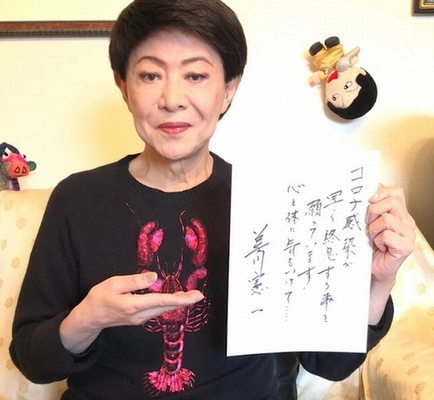 コロナ感染が
早く終息する事を
願っています
心と体に気をつけて…
美川憲一